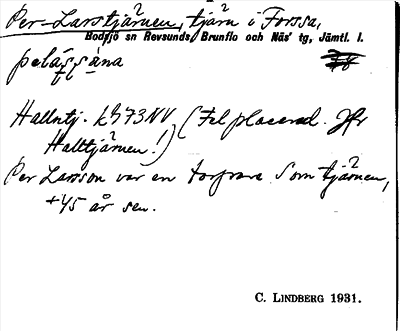 Per-Larstjärnen, tjärn i Forssa,
Bodsjö sn Revsunds, Brunflo och Näs' tg, Jämtl. l.
pelás̱s̱ána
Hallntj. k373NV (Felplacerad. Jfr
Halltjärnen!)
Per Larsson var en torpare som tjärnen,
+45 år sen.
C. LINDBERG 1931.